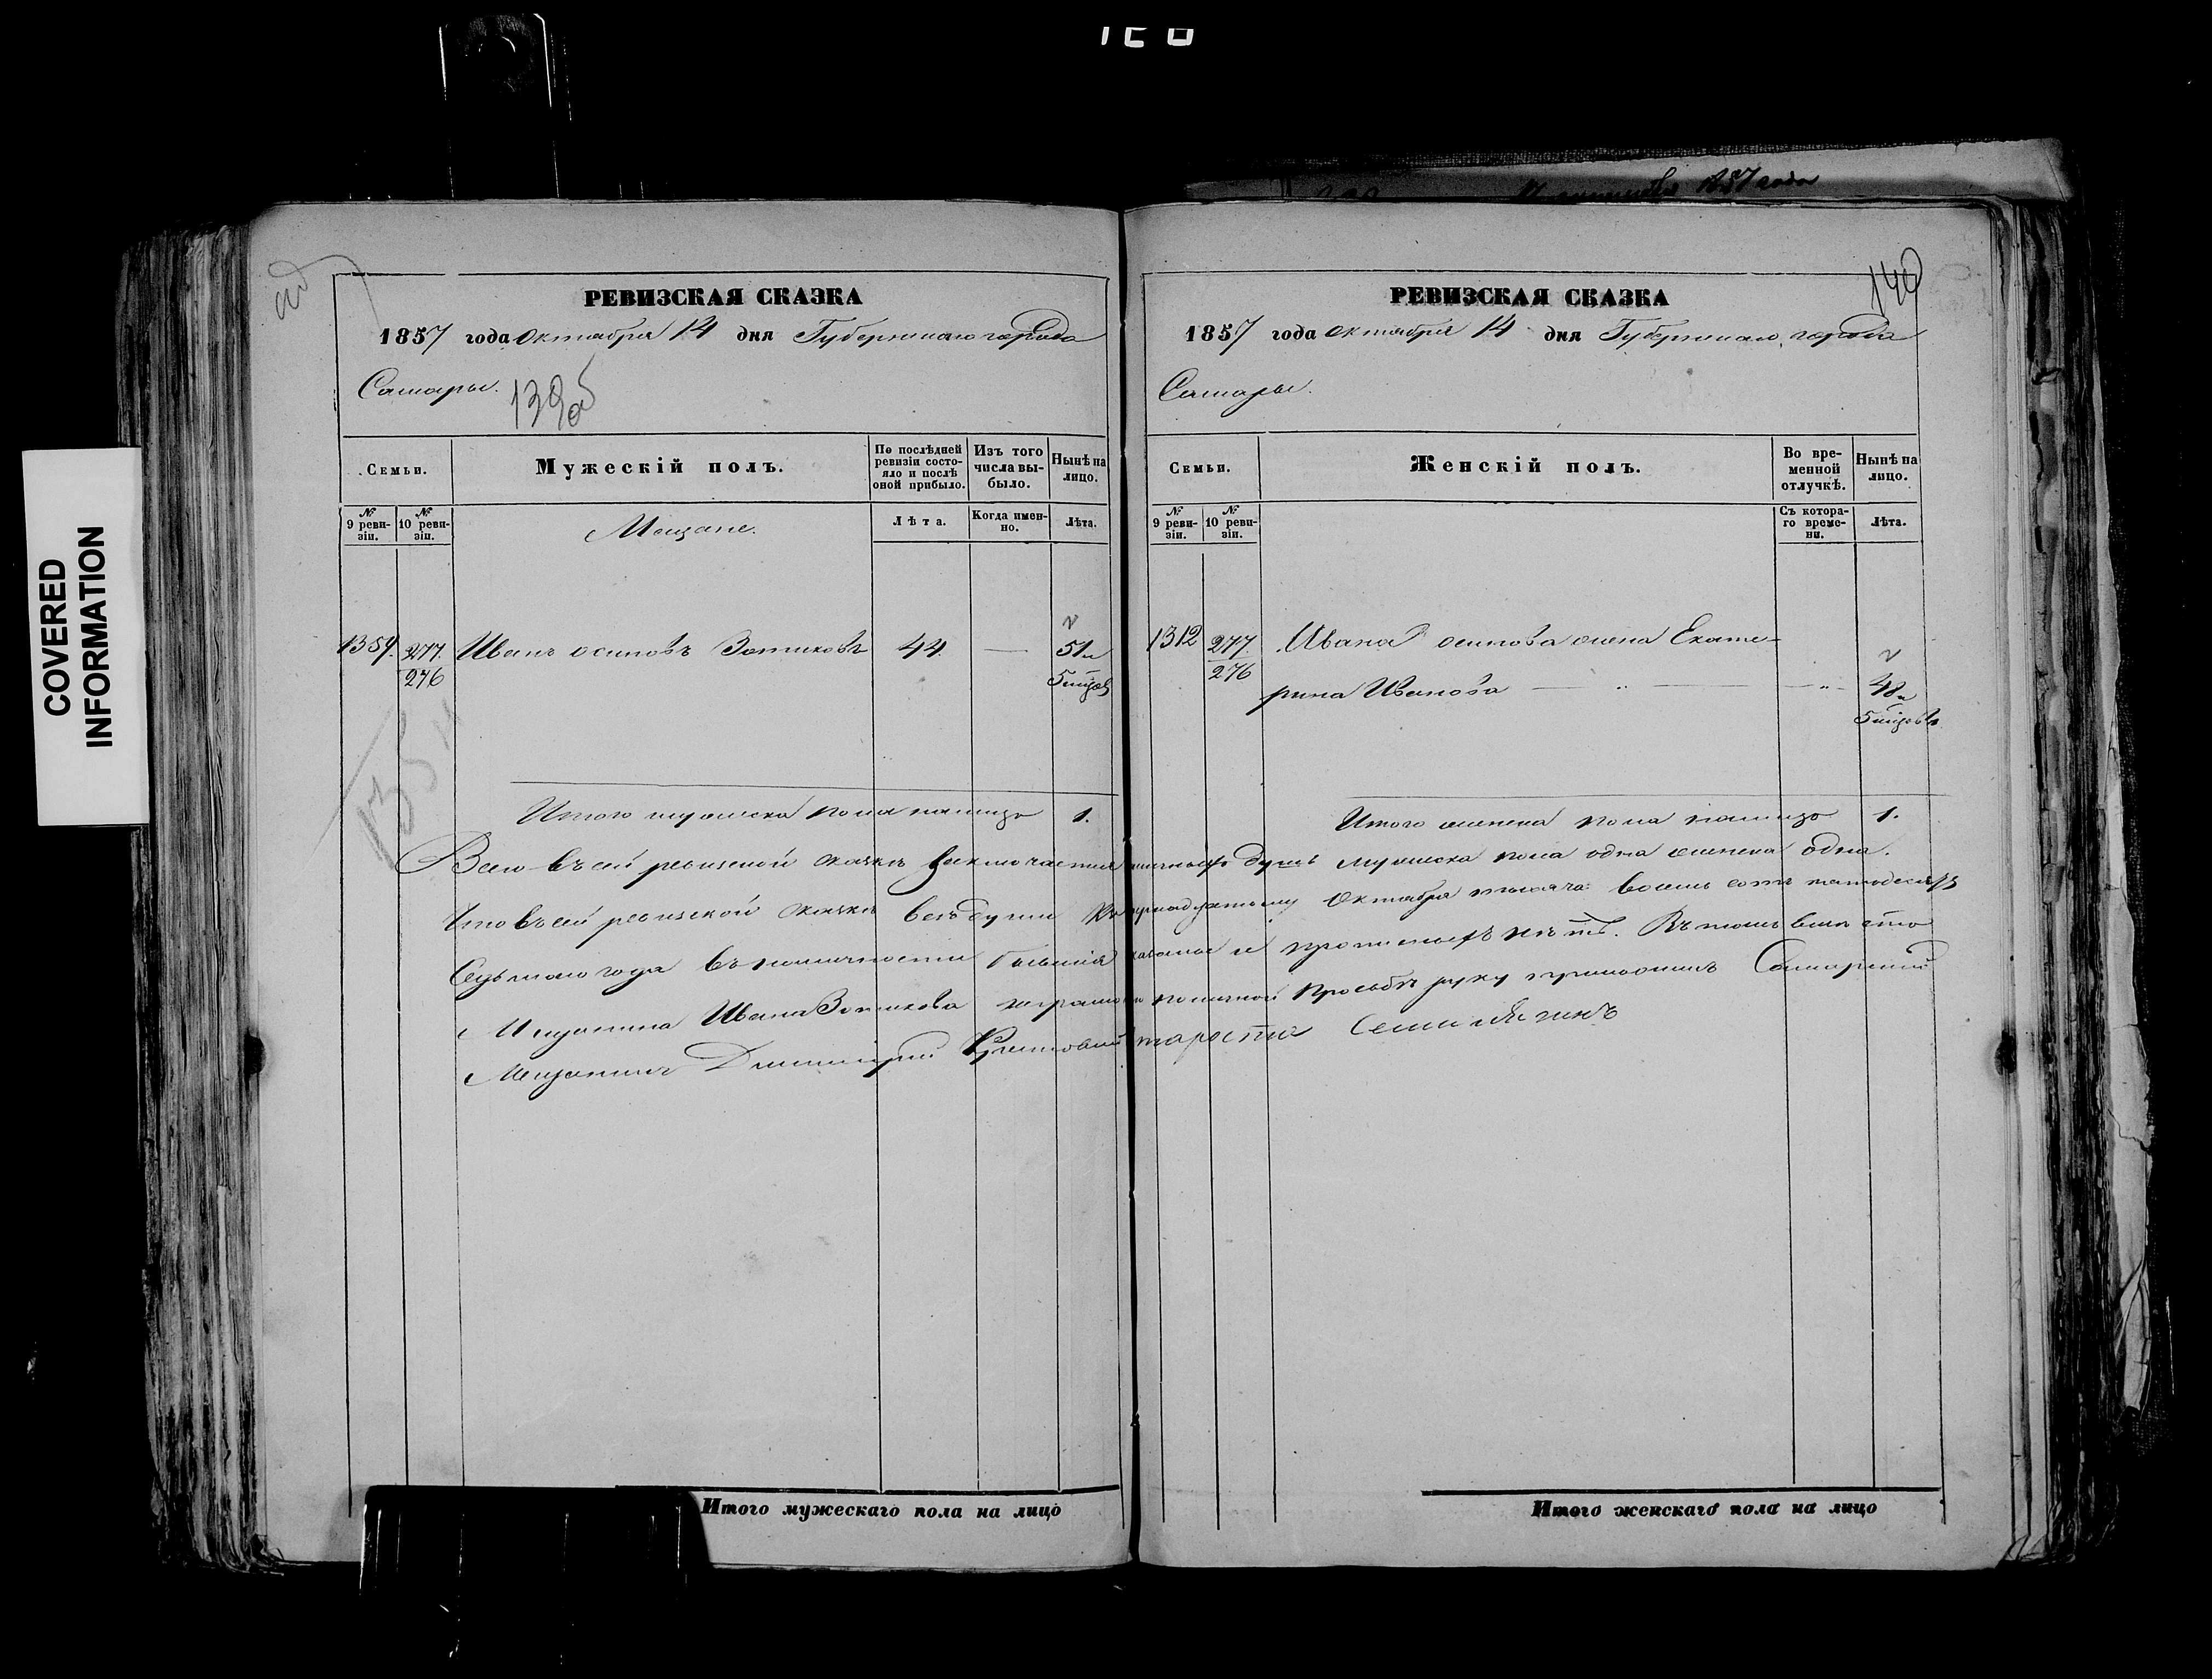 1857 года
140
РЕВИЗСКАЯ СКАЗКА
1857 года октября 14 дня Губернскаго города
Самары.
139об
Семьи.
Мужескій полъ.
По послѣдней ревизіи состояло и послѣ оной прибыло.
Изъ того числа выбыло.
Нынѣ на лицо.
№ 9 ревизіи.
№ 10 ревизіи.
Мещане.
Лѣта.
Когда именно.
Лѣта.
1359. 277. Иванъ осиповъ Зотиковъ 44. — 51 и
276 5 мцов
Итого мужеска пола налицо 1.
РЕВИЗСКАЯ СКАЗКА
1857 года октября 14 дня Губернскаго города
Самары.
Семьи.
Женскій полъ.
Во временной отлучкѣ.
Нынѣ на лицо.
№ 9 ревизіи.
№ 10 ревизіи.
Съ котораго времени.
Лѣта.
1312 277. Ивана осипова жена Екате-
276
рина Иванова — „ — — „ — 48 и
5 мцовъ
Итого женска пола налицо 1.
Всего въ сей ревизской сказкѣ заключается наличныхъ душъ мужеска пола одна женска одна.
Что въ сей ревизской сказкѣ всѣ души къ четырнадцатому Октября тысяча восемь сотъ пятьдесятъ
Седьмаго года въ наличности бывшія показаны и прописныхъ нѣтъ. Въ томъ вмѣсто
Мещанина Ивана Зотикова неграмотн по личной просьбѣ руку приложилъ Самарский
Мещанинъ Дмитрий
староста
Итого мужескаго пола на лицо
Итого женскаго пола на лицо
COVERED
INFORMATION